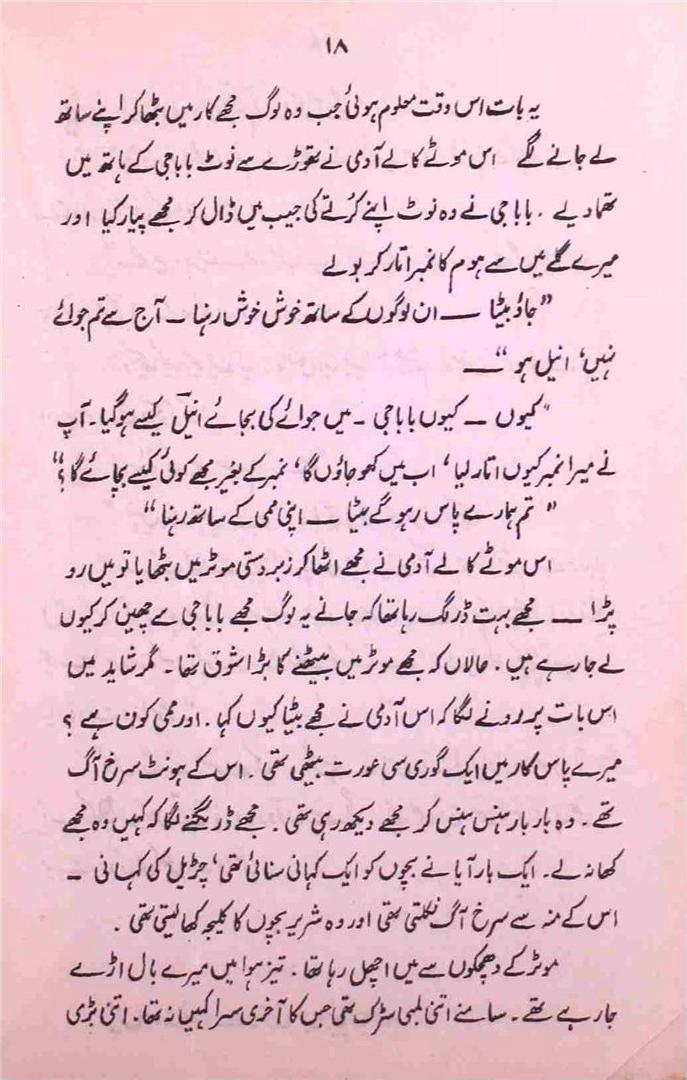 ۱۸
یہ بات اس وقت معلوم ہوئی جب وہ لوگ مجھے کار میں بٹھا کر اپنے ساتھ
لے جانے لگے اس موٹے کالے آدمی نے تھوڑے سے نوٹ بابا جی کے ہاتھ میں
تھما دیے ۔ بابا جی نے وہ نوٹ اپنے کُرتے کی جیب میں ڈال کر مجھے پیار کیا اور
میرے گلے میں سے ہوم کا نمبر اتار کر بولے
”جاؤ بیٹا — ان لوگوں کے ساتھ خوش خوش رہنا — آج سے تم جوالے
نہیں‘ انیل ہو“ —
”کیوں — کیوں بابا جی ۔ میں جوالے کی بجائے انیل کیسے ہوگیا ۔ آپ
نے میرا نمبر کیوں اتار لیا‘ اب میں کھو جاؤں گا‘ نمبر کے بغیر مجھے کوئی کیسے بچائے گا؟“
”تم ہمارے پاس رہو گے بیٹا — اپنی ممی کے ساتھ رہنا“
اس موٹے کالے آدمی نے مجھے اٹھا کر زبردستی موٹر میں بٹھایا تو میں رو
پڑا — مجھے بہت ڈر لگ رہا تھا کہ جانے یہ لوگ مجھے بابا جی سے چھین کر کیوں
لے جا رہے ہیں ۔ حالاں کہ مجھے موٹر میں بیٹھنے کا بڑا شوق تھا ۔ مگر شاید میں
اس بات پر رونے لگا کہ اس آدمی نے مجھے بیٹا کیوں کہا ۔ اور ممی کون ہے ؟
میرے پاس کار میں ایک گوری سی عورت بیٹھی تھی ۔ اس کے ہونٹ سرخ آگ
تھے ۔ وہ بار بار ہنس ہنس کر مجھے دیکھ رہی تھی ۔ مجھے ڈر لگنے لگا کہ کہیں وہ مجھے
کھا نہ لے ۔ ایک بار آیا نے بچوں کو ایک کہانی سنائی تھی‘ چڑیل کی کہانی —
اس کے منہ سے سرخ آگ نکلتی تھی اور وہ شریر بچوں کا کلیجہ کھا لیتی تھی ۔
موٹر کے دھچکوں سے میں اچھل رہا تھا ۔ تیز ہوا میں میرے بال اڑے
جا رہے تھے ۔ سامنے اتنی لمبی سڑک تھی جس کا آخری سرا کہیں نہ تھا ۔ اتنی بڑی